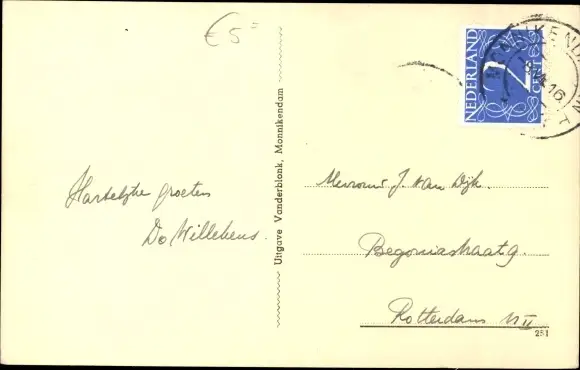 € 5=
NEDERLAND
2
CENT
Hartelijke groeten
Do Willekens.
Uitgave Vanderblonk, Monnikendam
Mevrouw J. van Dijk.
Begoniastraat 9.
Rotterdam N II
251